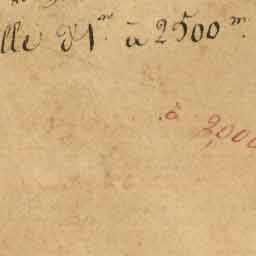 lle d'1.m à 2500 m.
à 2,000